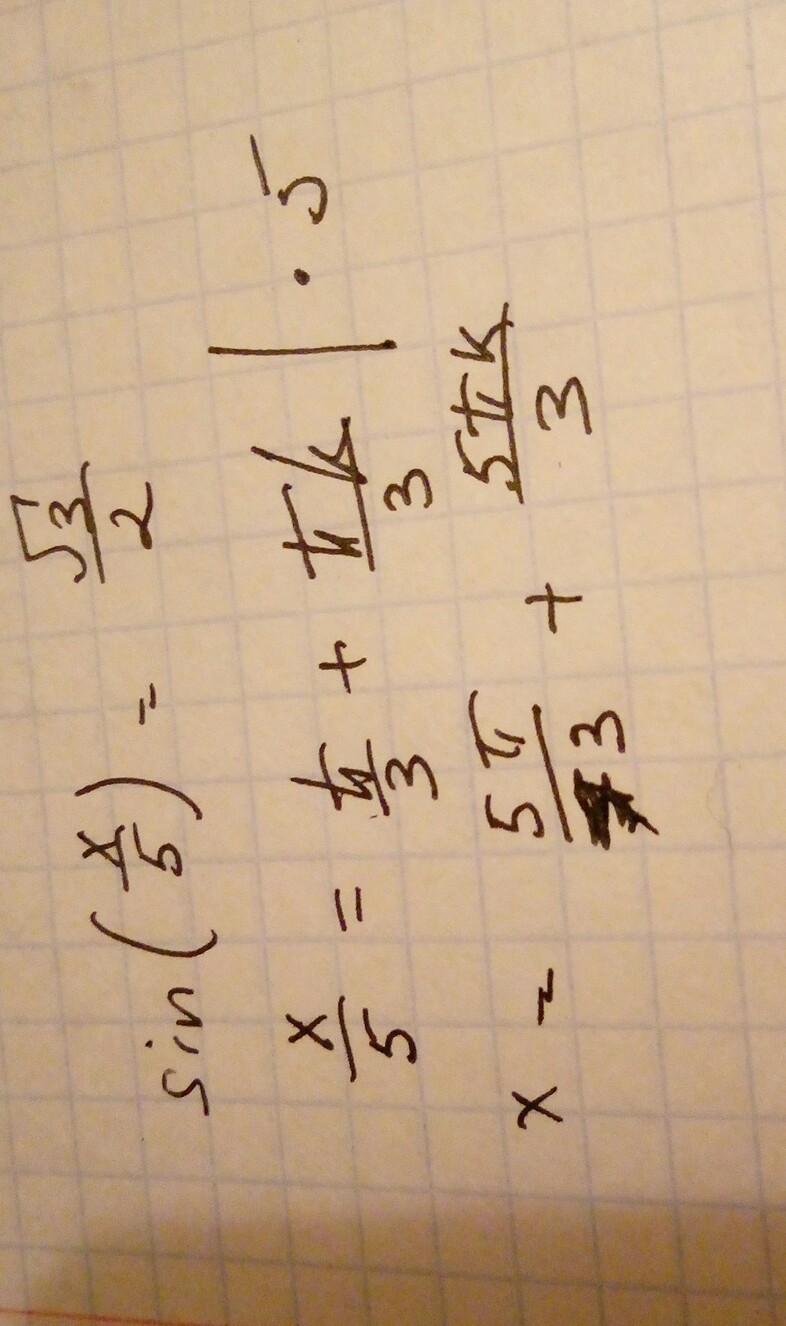 sin(x/5) = √3/2
x/5 = π/3 + πk/3 | · 5
x = 5π/3 + 5πk/3